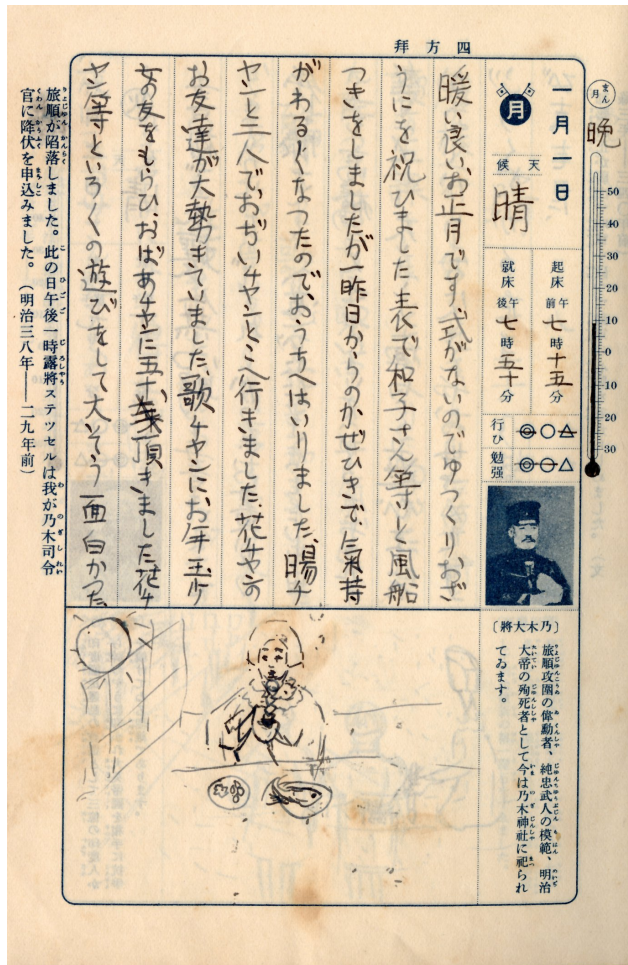 四方拜
まん月
晩
50
40
30
20
10
0
10
20
30
一月一日
月
天候
晴
起床 午前七時十五分
就床 午後七時五十分
行ひ ◎○△
勉强 ◎○△
暖い良いお正月です、式がないのでゆつくりおざ
うにを祝ひました表で和子さん等と風船
つきをしましたが一昨日からのかぜひきで、氣持
がわるくなつたのでおうちへはいりました、陽チ
ヤンと二人でおぢいチヤンとこへ行きました、花チヤンの
お友達が大勢きていました、歌チヤンにお年玉少
女の友をもらひ、おばあチヤンに五十銭頂きました花チ
ヤン等といろ〱の遊びをして大そう面白かつた
旅順が陷落しました。此の日午後一時露將ステツセルは我が乃木司令
官に降伏を申込みました。（明治三八年――二九年前）
〔乃木大將〕
旅順攻圍の偉勳者、純忠武人の模範、明治
大帝の殉死者として今は乃木神社に祀られ
てゐます。